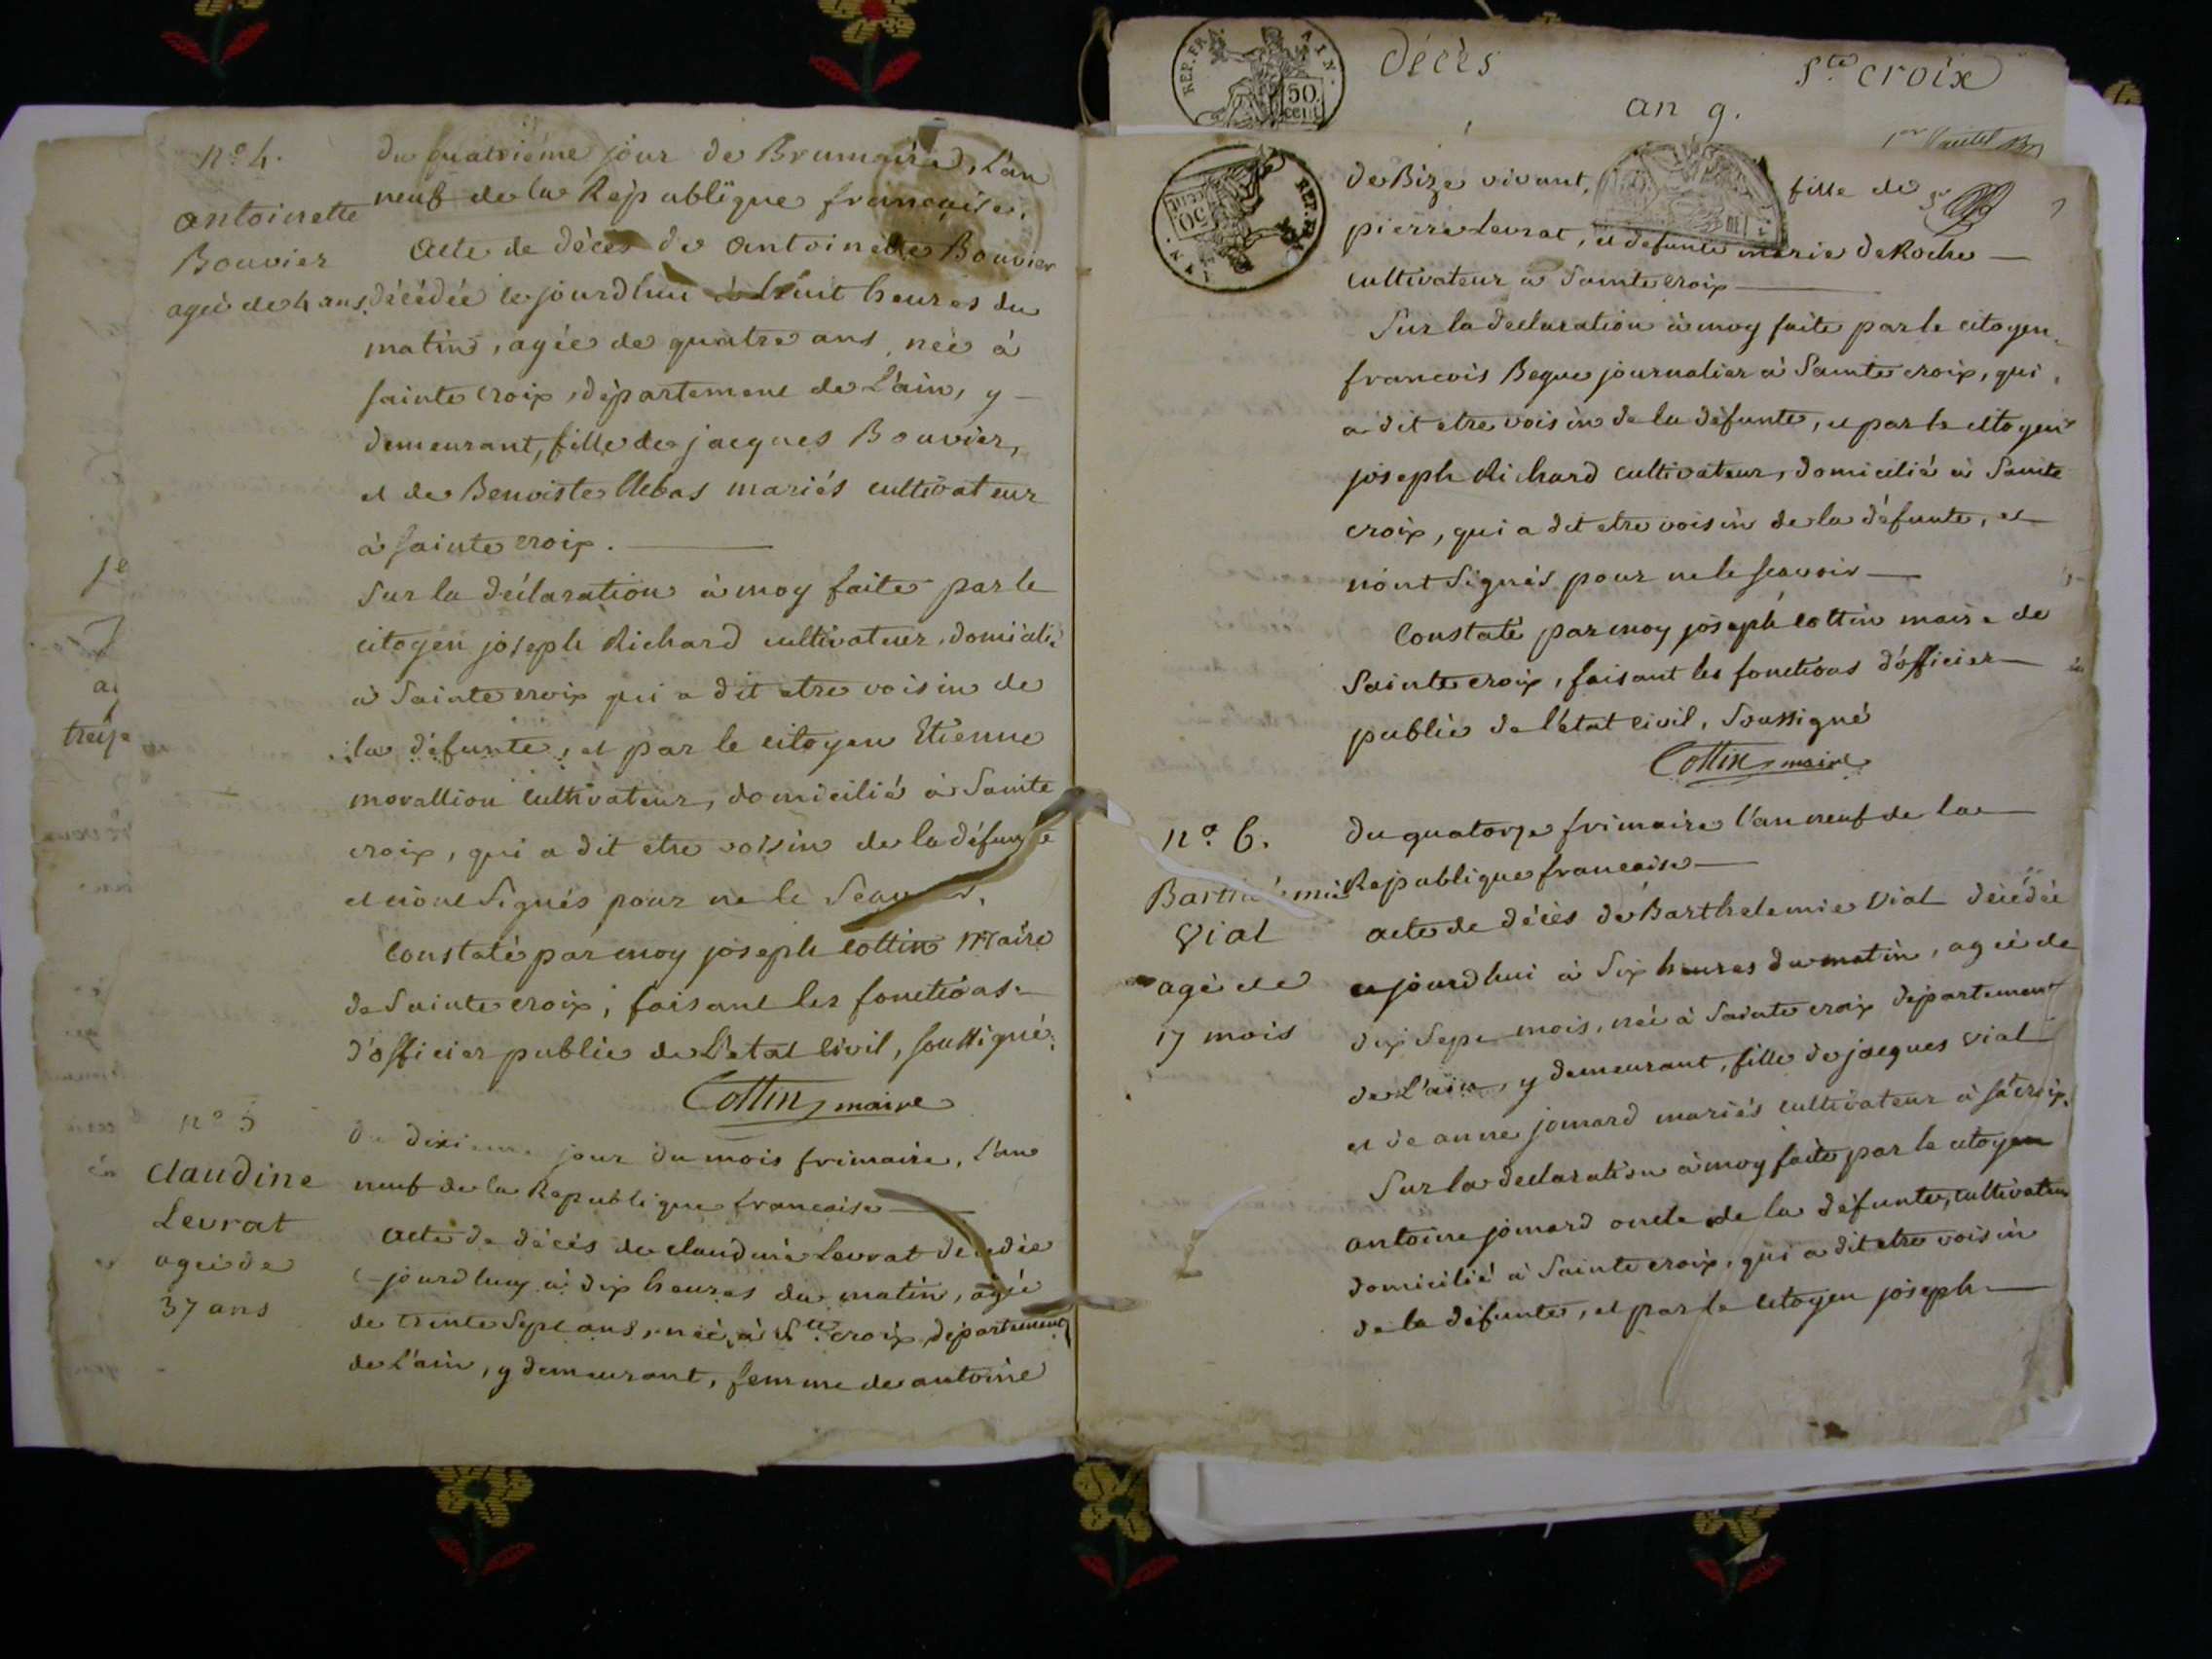 n.o 4.
antoinette
Bouvier
ageé de 4 ans.
du quatriéme jour de Brumaire, L'an
neuf de la République francaise.
Acte de décès de Antoinette Bouvier
décédée ce jourdhui à huit heures du
matin, agée de quatre ans, née à
sainte croix, département de L'ain, y
demeurant, fille de jacques Bouvier,
et de Benoiste mariés cultivateur
à sainte croix.
Sur la déclaration à moy faite par le
citoyen joseph Richard cultivateur, domicilié
à Sainte croix qui a dit etre voisin de
la défunte, et par le citoyen Etienne
morallion cultivateur, domicilié à Sainte
croix, qui a dit etre voisin de la défunte
et n'ont Signés pour ne le
Constaté par moy joseph cottin Maire
de Sainte croix, faisant les fonctions
d'officier public de L'etat civil, soussigné.
Cottin, maire
n.o 5
claudine
Levrat
ageé de
37 ans
Du dixieme jour du mois frimaire, L'an
neuf de la Republique francaise
Acte de décès de claudine Levrat décédée
ce jourdhuy à dix heures du matin, agée
de trente Sept ans, née à Ste croix, département
de L'ain, y demeurant, femme de antoine
je
ag
treize
REP. FRA.
AIN.
50 cent
décès
Ste croix
an 9.
REP. FRA.
AIN.
50 cent
de Bize vivant, fille de
pierre Levrat, et defunte marie deRoche
cultivateur à Sainte croix
Sur la declaration à moy faite par le citoyen
francois Beque journalier à Sainte croix, qui
a dit etre voisin de la défunte, et par le citoyen
joseph Richard cultivateur, domicilié à Sainte
croix, qui a dit etre voisin de la défunte, et
n'ont Signés pour ne le scavoir
Constaté par moy joseph cottin maire de
Sainte croix, faisant les fonctions d'officier
public de l'état civil, Soussigné
Cottin, maire
n.o 6.
Barthélémie
Vial
agé de
17 mois
du quatorze frimaire l'an neuf de la
Republique francaise
acte de décès de Barthelemie Vial décédée
ce jourdhui à Six heures du matin, ageé de
dix Sept mois, neé à Sainte croix departement
de L'ain, y demeurant, fille de jacques Vial
et de anne jomard mariés cultivateur à Ste croix.
Sur la declaration à moy faite par le citoyen
antoine jomard oncle de la défunte, cultivateur
domicilié à Sainte croix, qui a dit etre voisin
de la défunte, et par le citoyen joseph